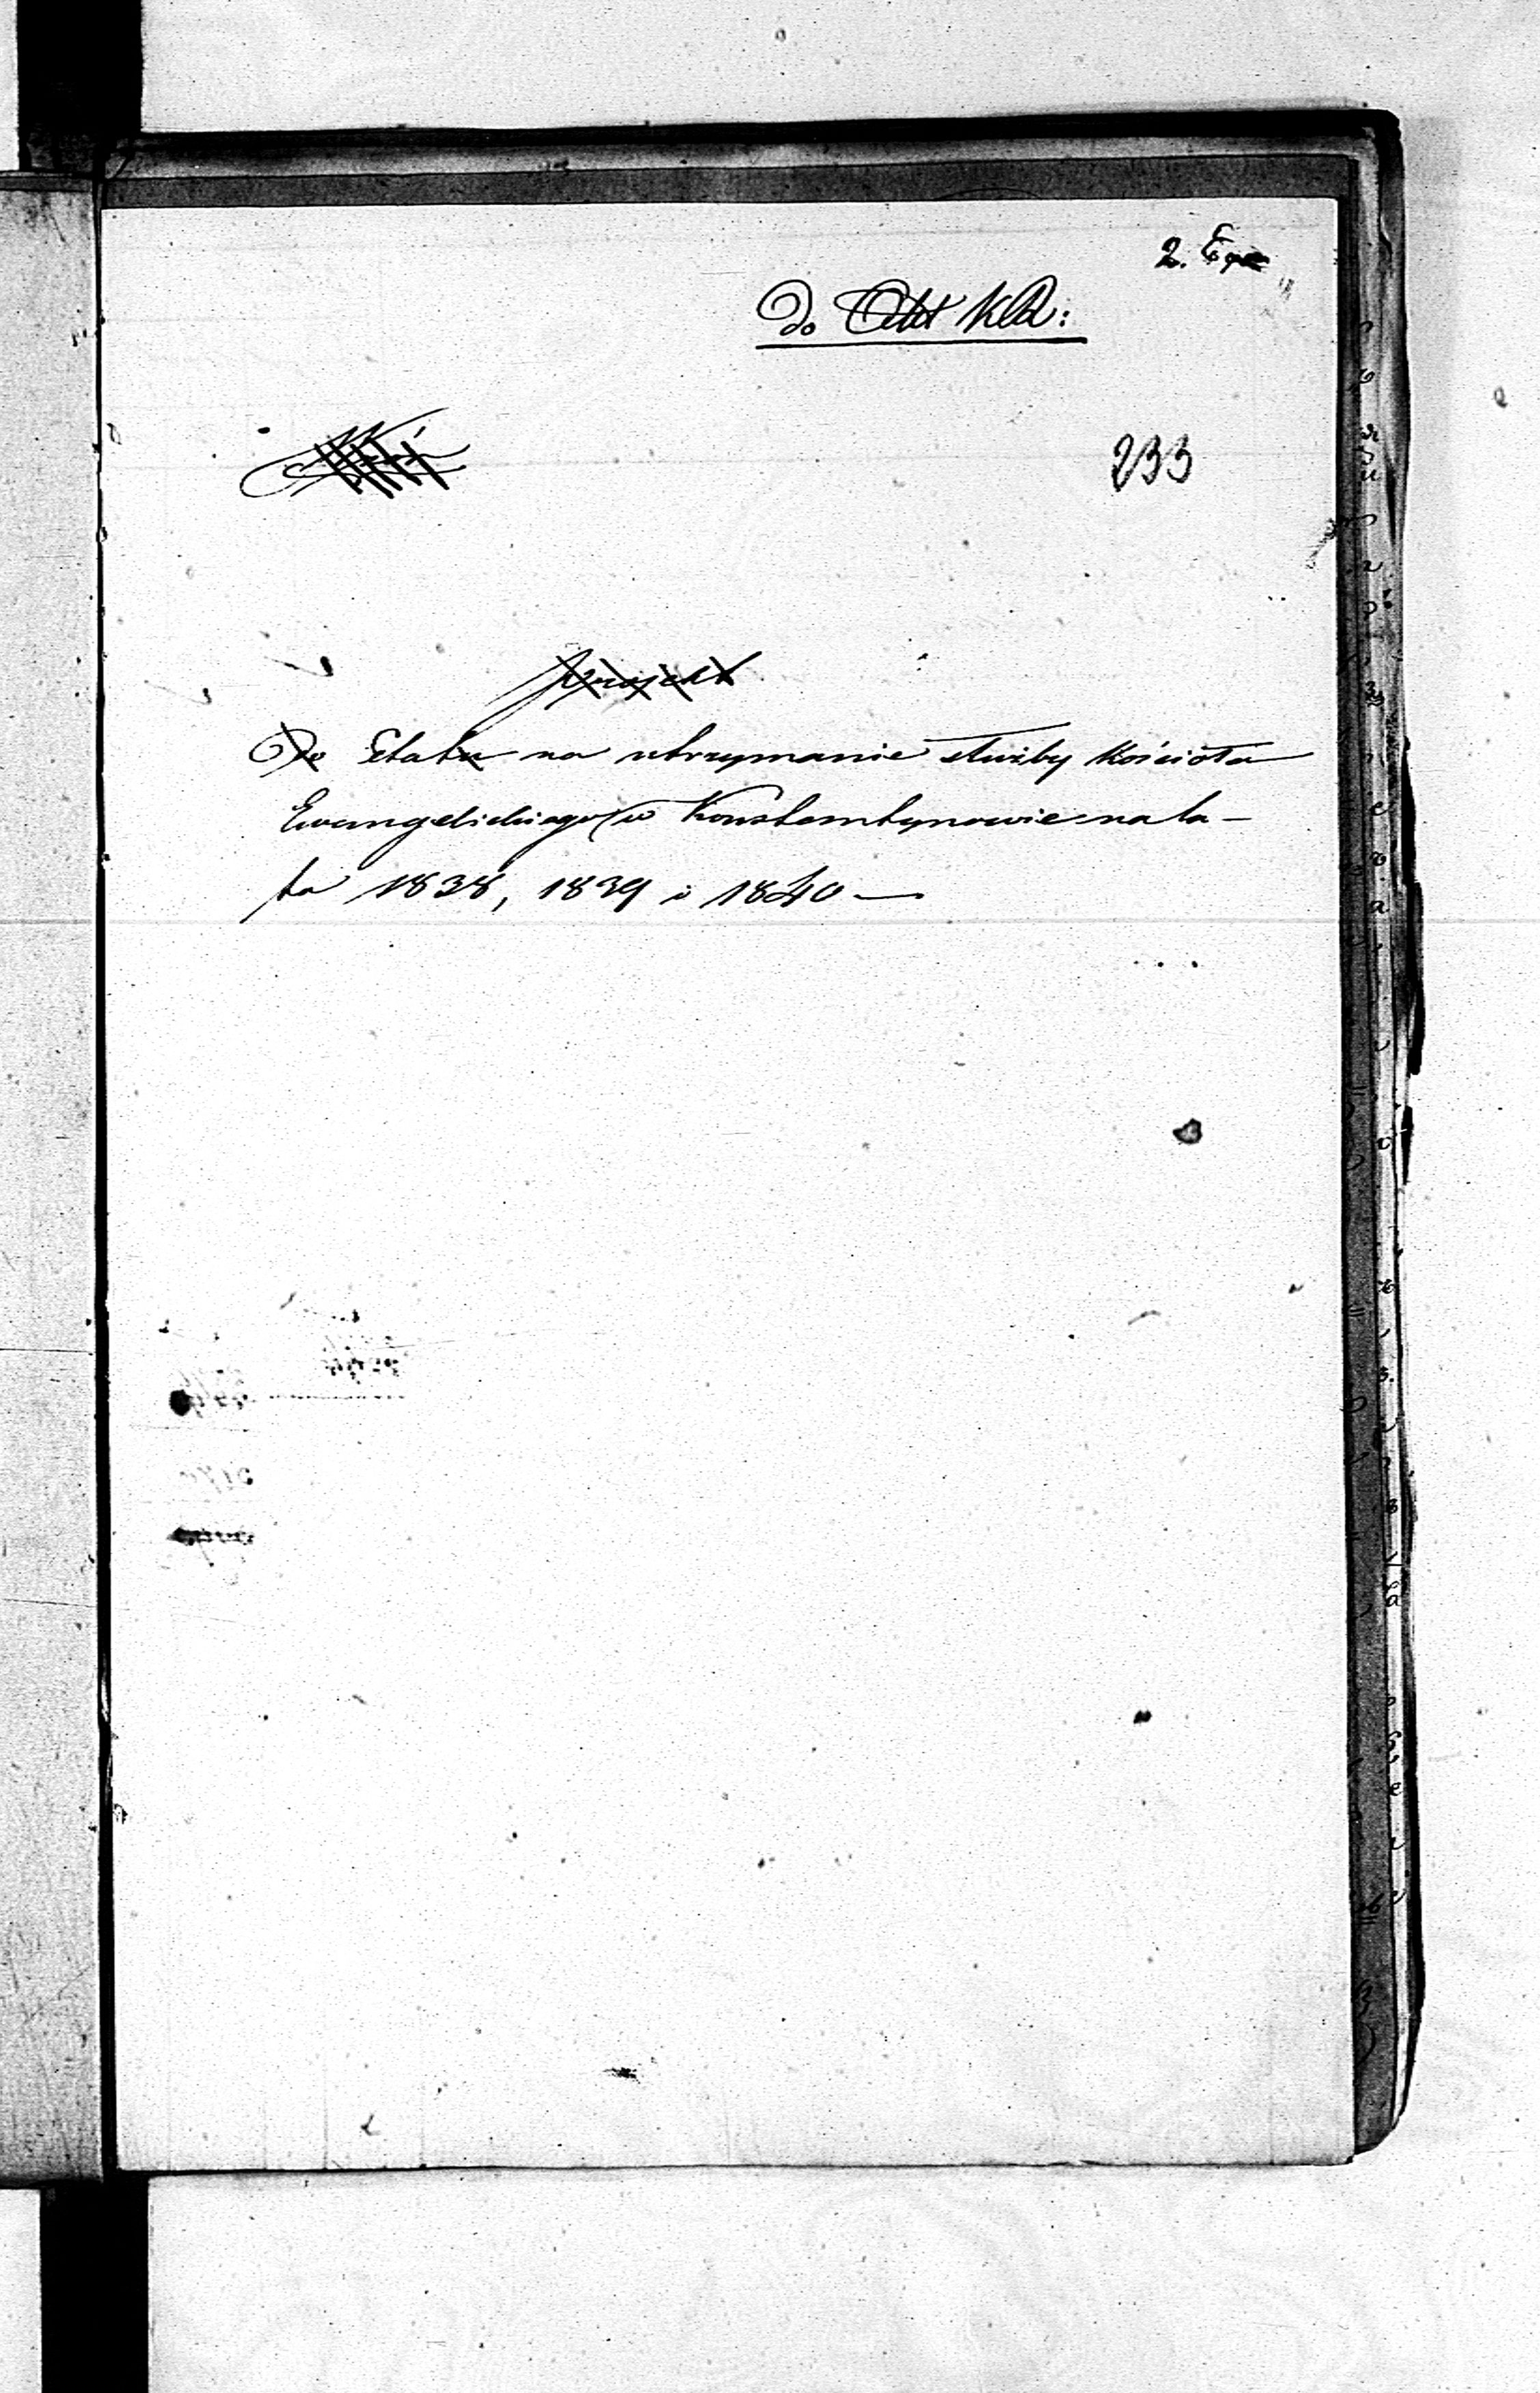 2. Ex
Do Akt KR:
233
Projekt
Do Etatu na utrzymanie służby Kościoła
Ewangelickiego w Konstantynowie na la-
ta 1838, 1839 i 1840 —